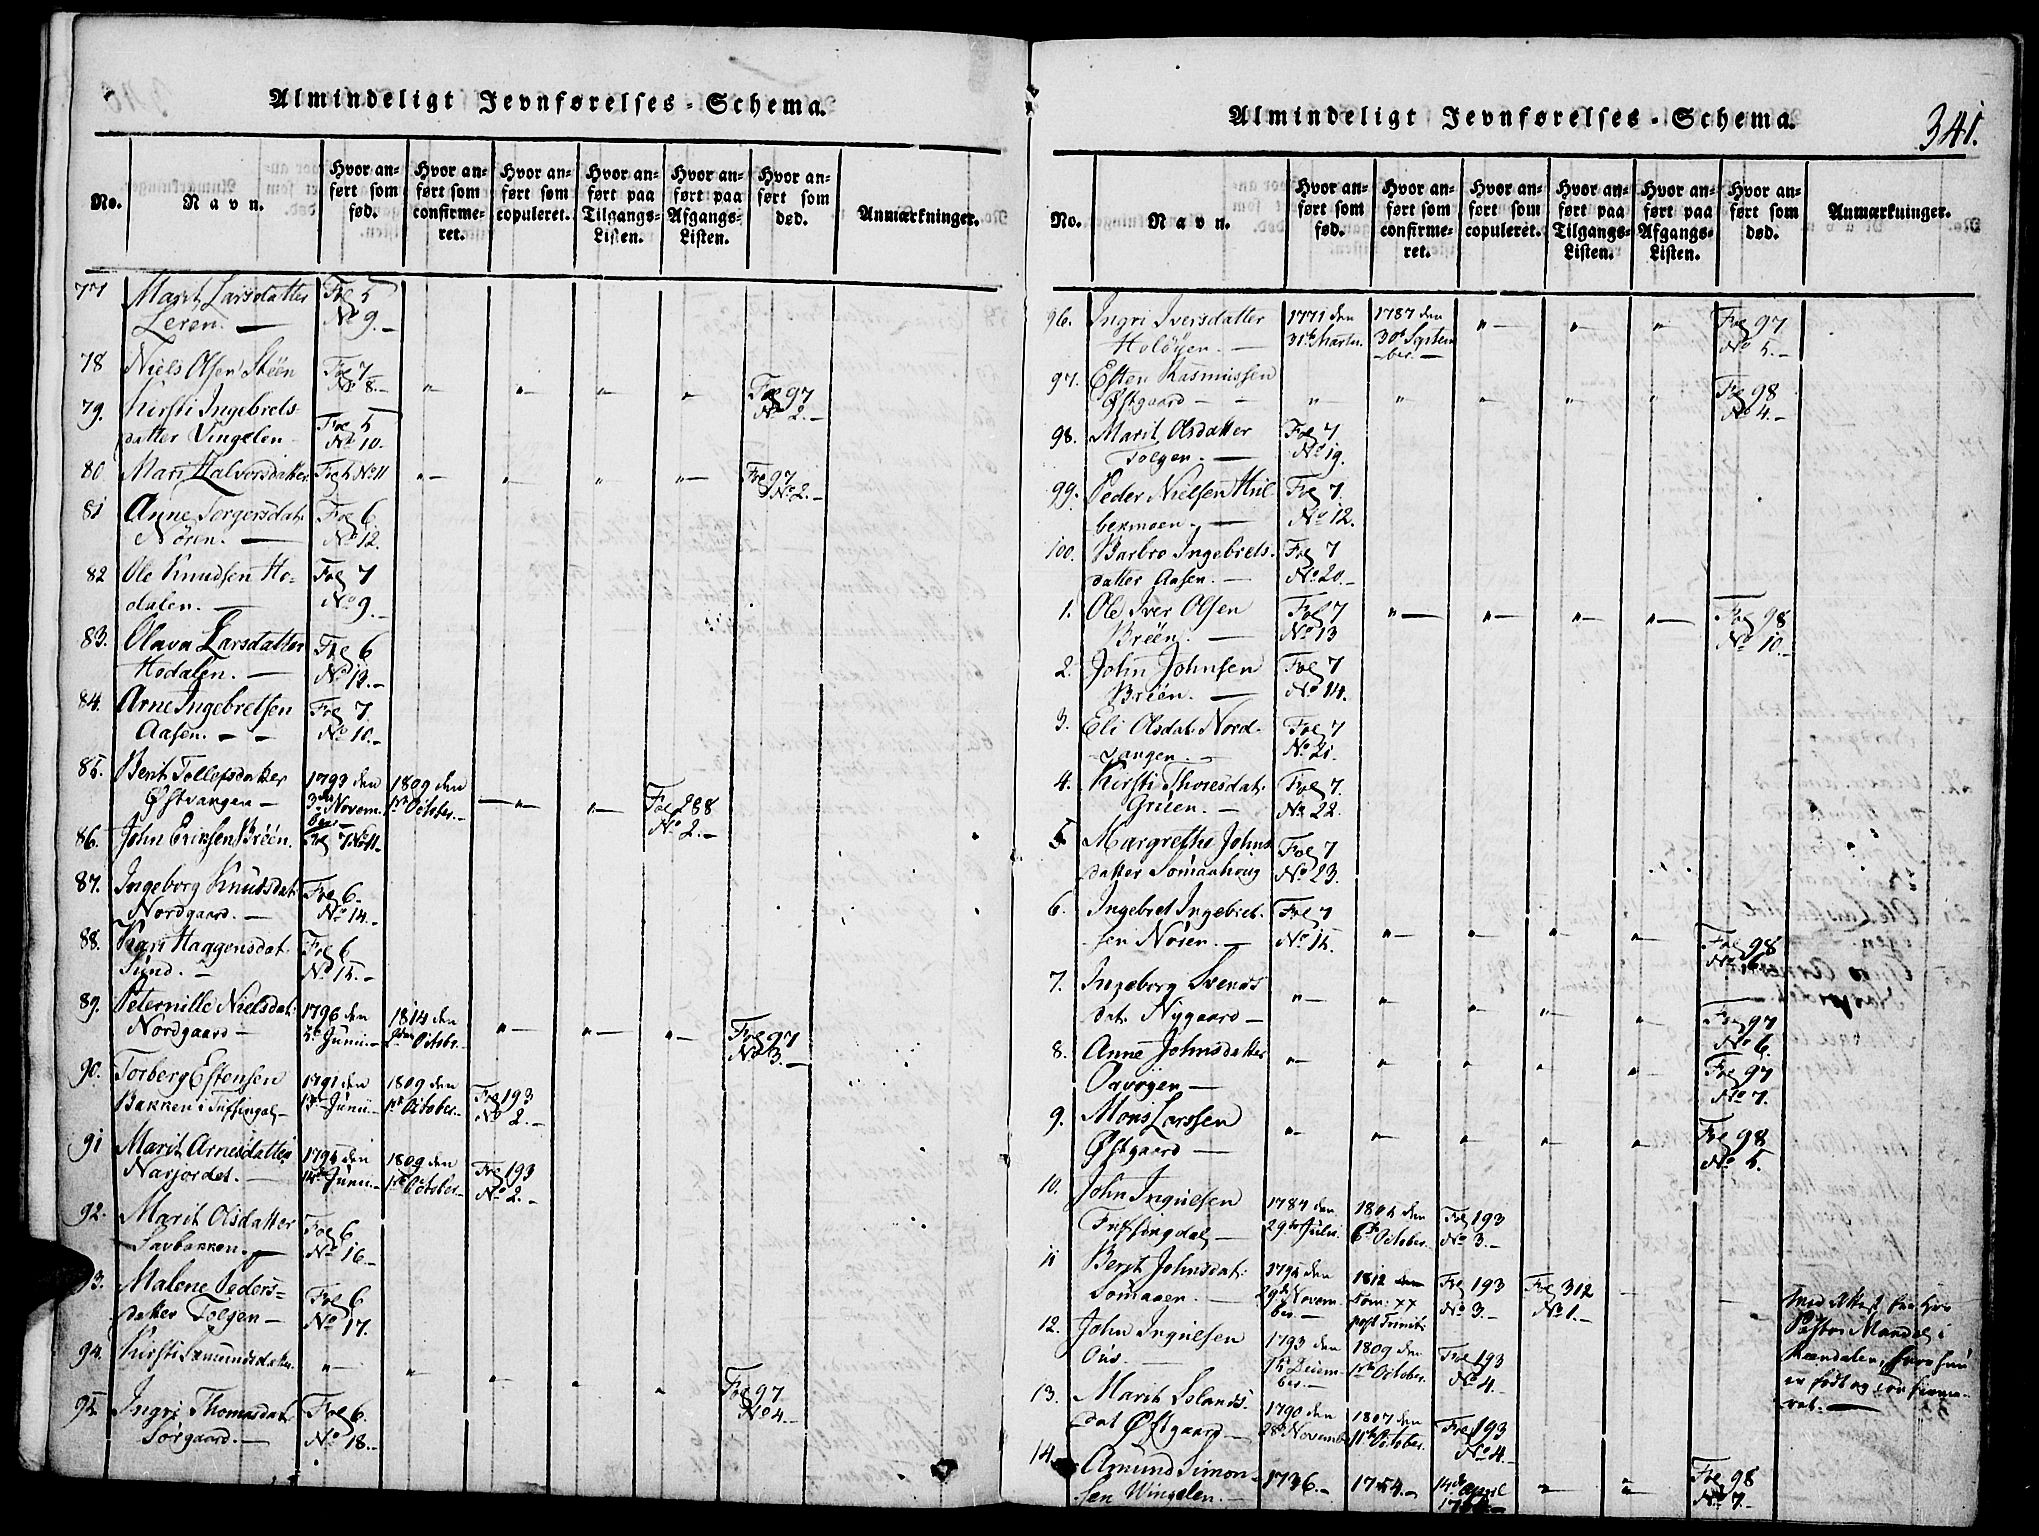 Almindeligt Jevnførelses-Schema.
No. Navn. Hvor anført som fød. Hvor anført som confirmeret. Hvor anført som copuleret. Hvor anført paa Tilgangs-Listen. Hvor anført paa Afgangs-Listen. Hvor anført som død. Anmærkninger.
77 Marit Larsdatter Fol 5
Leren. — No 9.-
78 Niels Olsen Skéen Fol 7
No 8.- " " " " Fol 97
No 2.-
79. Kirsti Ingebrets- Fol 5
datter Vingelen No 10.
80 Mari Halvorsdatter Fol 5 No 11 " " " " Fol 97
No 2.-
81 Anne Torgersdat. Fol 6
Nören. — No 12.
82 Ole Knudsen Ho- Fol 7
dalen. — No 9.-
83. Olava Larsdatter Fol 6
Hodalen. — No 13.-
84. Arne Ingebretsen Fol 7.
Aasen. - - No 10.-
85. Berit Tollefsdatter 1793 den 1809 den
Østvangen - 3die Novem- 1ste October.- " " Fol 288
ber.- No 2.-
86. John Eriksen Bréen. Fol 7 No 11.-
87. Ingeborg Knudsdat. Fol 6.-
Nordgaard. — No 14.-
88. Kari Haggensdat. Fol 6
Sund. — No 15.-
89. Peternille Nielsdat. 1796 den 1814 den
Nordgaard - Junii.- October.- " " " Fol 97
No 3.-
90. Torberg Estensen 1791 den 1809 den Fol 193
Bakken i Tufsingdal.- Junii.- 1ste October.- No 2.-
91 Marit Arnesdatter 1795 den 1809 den Fol 193
Narjordet. — Junii.- 1ste October.- No 2.-
92. Marit Olsdatter Fol 6
No 16.-
93. Malene Peders- Fol 6
datter Tolgen - No 17.
94. Kirsti Simundsdatter. " " " " " Fol 97
No 4.-
95. Ingri Thomasdat. Fol 6.
Sørgaard. — No 18.-
Almindeligt Jevnførelses-Schema. 341.
No. Navn. Hvor anført som fød. Hvor anført som confirmeret. Hvor anført som copuleret. Hvor anført paa Tilgangs-Listen. Hvor anført paa Afgangs-Listen. Hvor anført som død. Anmærkninger.
96. Ingri Iversdatter 1771 den 1787 den " " " Fol 97
Holöyen. — 31te Martii. 30te Septem- No 5.-
ber. —
97. Esten Rasmussen
Østgaard - - " " " " " Fol 98
No 4.-
98. Marit Olsdatter Fol 7
Tolgen. — No 19.
99. Peder Nielsen Hül- Fol 7.
bekmoen. — No 12.
100. Barbro Ingebrets- Fol 7
datter Aasen. — No 20.-
1. Ole Iver Olsen Fol 7 " " " " Fol 98
Bréen. — No 13 No 10.-
2. John Johnsen Fol 7
Bréen. — No 14.
3. Eli Olsdat. Nord- Fol 7
vangen. — No 21.
4. Kirsti Thoresdat. Fol 7.
Grüen. — No 22.
5 Margrethe Johns- Fol 7
datter Sömaahoug No 23.
6. Ingebret Ingebret- Fol 7
sen Nören. — No 15. " " " " Fol 98
No 6.
7. Ingeborg Svends-
dat. Nygaard — " " " " " Fol 97
No 6.
8. Anne Johnsdatter " " " " " Fol 97
Orvögen — No 7.
9. Mons Larssen
Østgaard — " " " " " Fol 98
No 5.
10. John Ingulfsen 1784 den 1804 den Fol 193
Tufsingdal - 29de Julii. October. No 3.-
11 Berit Johnsdat. 1795 den 1812 den Fol 193 Fol 312 — —
Sömaaen. — 29de Novem- Dom. XX No 3.- No 1.-
ber.- post Trinit.
Med Attest fra Hr.
Pastor Mandal i
Rendalen, hvor hun
er födt og confirme-
ret. —
12. John Ingulfsen 1793 den 1809 den Fol 193
Öus. — Decem- 1ste October. No 4.-
ber.-
13. Marit Erlands- 1790 den 1807 den Fol 193
dat Østgaard - 28de Novembr. 11te October. No 4.-
14. Amund Simon- 1736.- 1754.- April " " Fol 98
sen Wingelen. — No 7.-